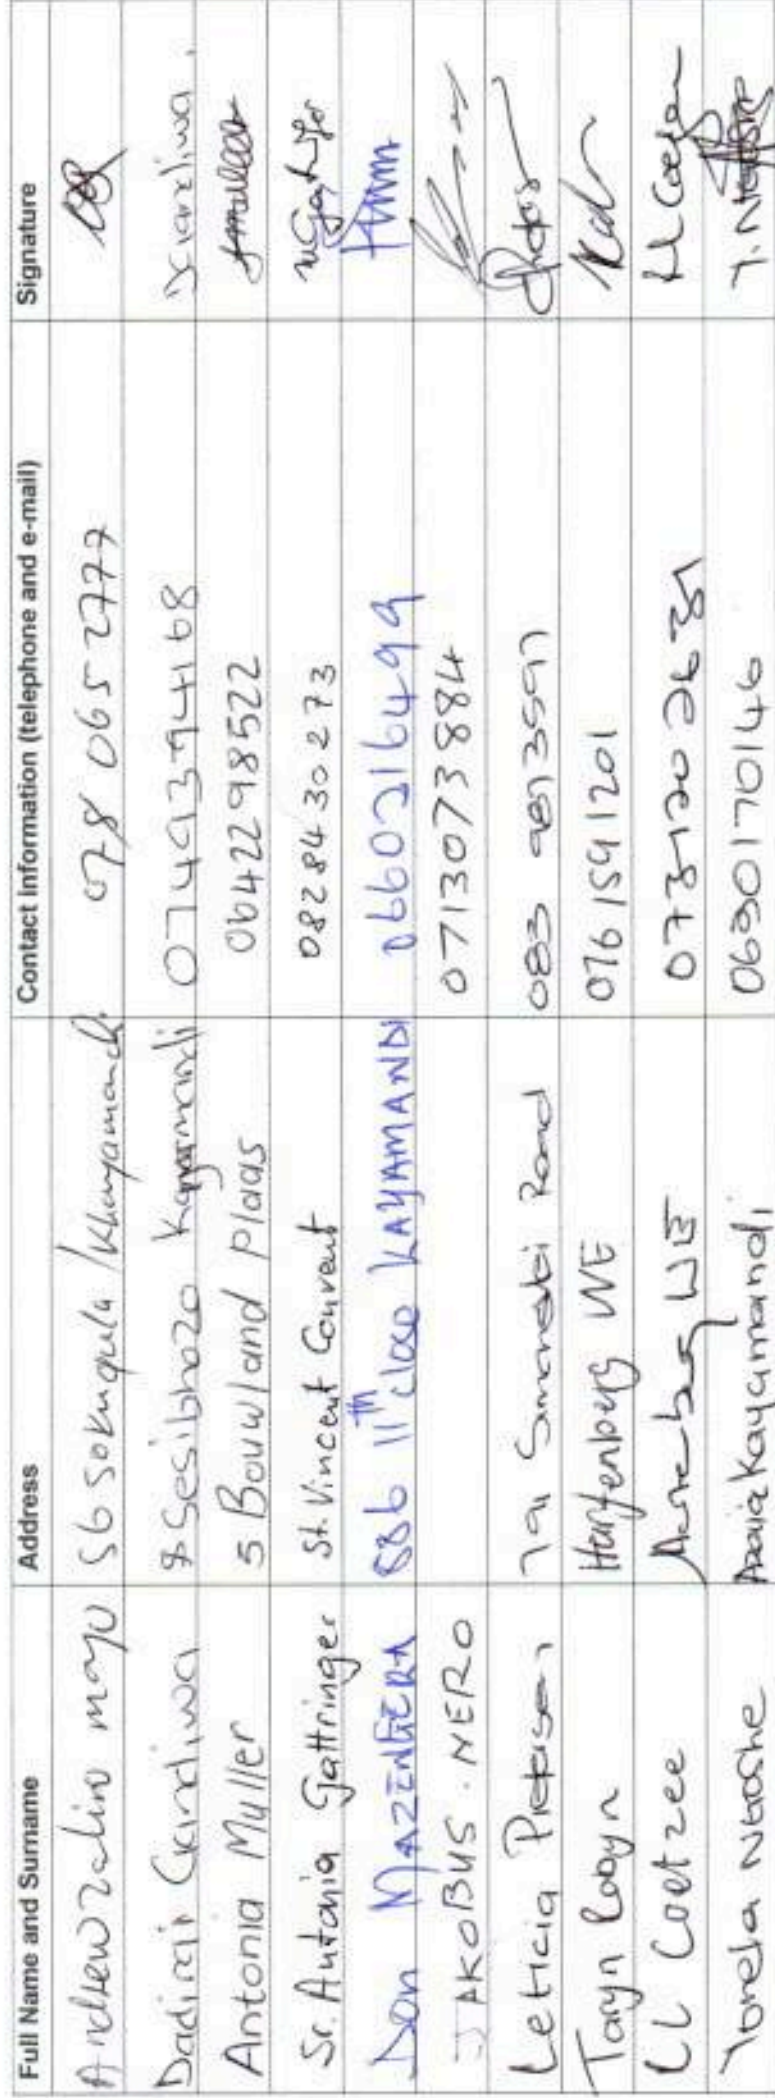 Full Name and Surname Address Contact Information (telephone and e-mail) Signature
Andrew zalino mayo 56 Sokuqula /Khayamandi 078 065 2777
Dadirai Gandiwa 8 Sesibhozo Kayamandi 0749394168 Gandiwa.
Antonia Muller 5 Bouwland Plaas 0642298522 Amuller
Sr. Antonia Gattringer St. Vincent Convent 0828430273
Don MAZENGERA 886 11th close KAYAMANDI 0660216499
JAKOBUS . NERO 0713073884
Leticia Pietersen 79 Road 083
Taryn Robyn Hartenberg WE 0761591201
LL Coetzee WE LL Coetzee
Kayamandi 0630170146